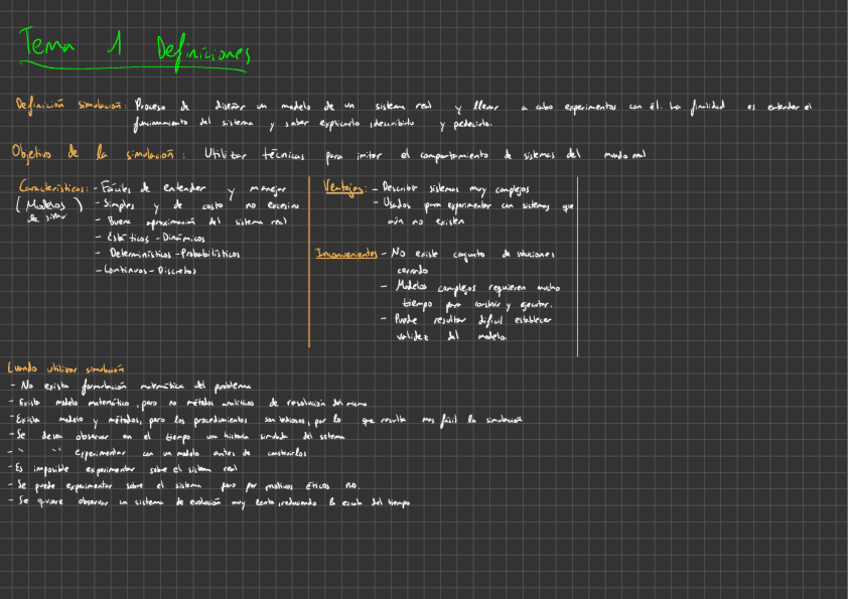 Tema 1 Definiciones
Definición simulación: Proceso de diseñar un modelo de un sistema real y llevar a cabo experimentos con él. La finalidad es entender el
funcionamiento del sistema y saber explicarlo, describirlo y predecirlo.
Objetivo de la simulación: Utilizar técnicas para imitar el comportamiento de sistemas del mundo real
Características: - Fáciles de entender y manejar
(Modelos - Simples y de costo no excesivo
de simu) - Buena aproximación del sistema real
- Estáticos - Dinámicos
- Determinísticos - Probabilísticos
- Continuos - Discretos
Ventajas: - Describir sistemas muy complejos
- Usados para experimentar con sistemas que
aún no existen
Inconvenientes - No existe conjunto de soluciones
cerrado
- Modelos complejos requieren mucho
tiempo para construir y ejecutar.
- Puede resultar difícil establecer
validez del modelo
Cuando utilizar simulación
- No exista formulación matemática del problema
- Exista modelo matemático, pero no métodos analíticos de resolución del mismo
- Exista modelo y métodos, pero los procedimientos son tediosos, por lo que resulta mas fácil la simulación
- Se desea observar en el tiempo una historia simulada del sistema
- " " Experimentar con un modelo antes de construirlos
- Es imposible experimentar sobre el sistema real
- Se puede experimentar sobre el sistema pero por motivos éticos no.
- Se quiere observar un sistema de evolución muy lenta, reduciendo la escala del tiempo